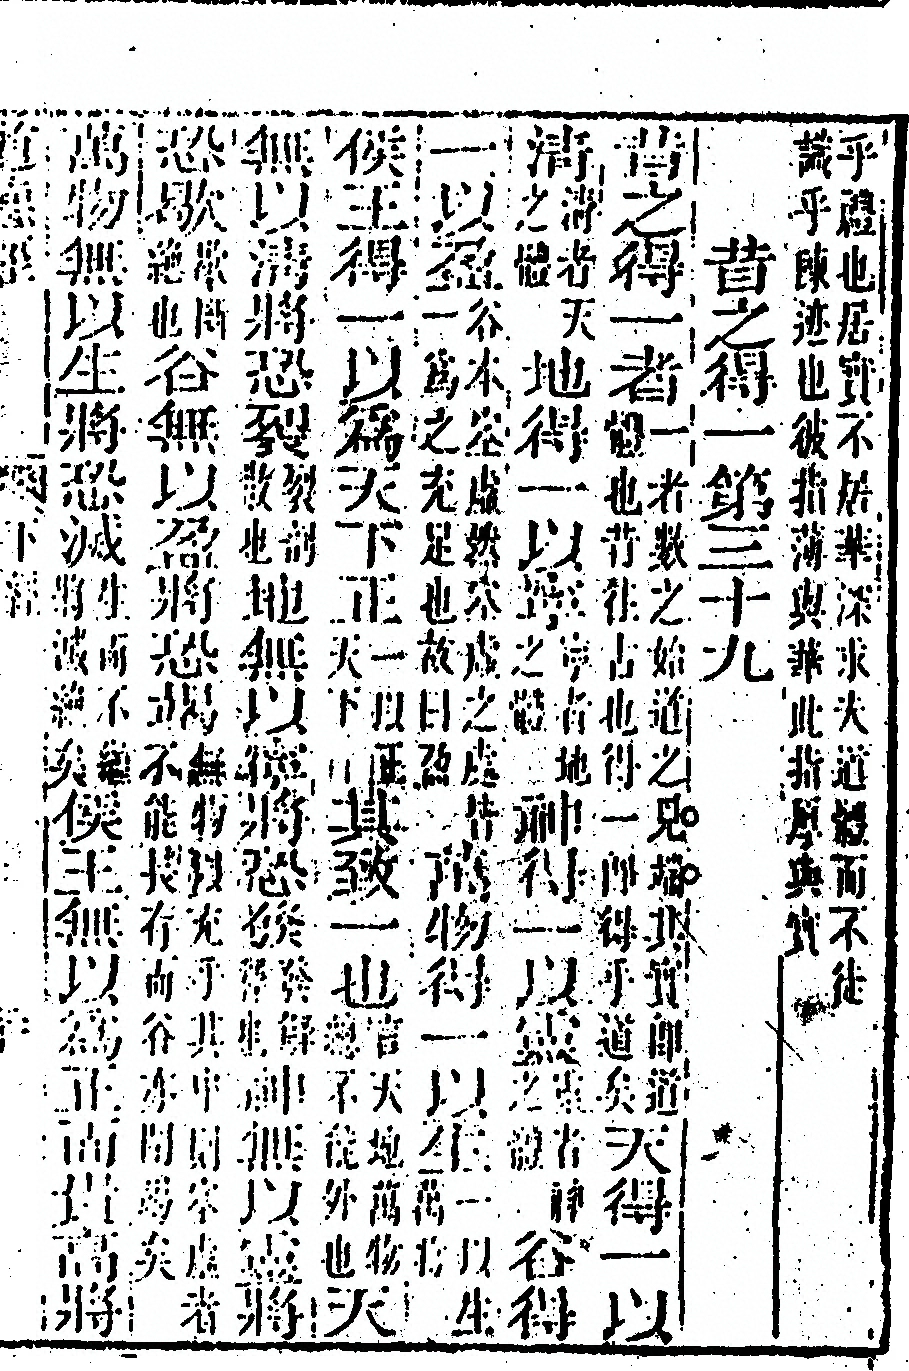 乎禮也居實不居華深求大道體而不徒
識乎陳迹也彼指薄與華此指厚與實
昔之得一第三十九
昔之得一者一者數之始道之見端其實卽道體也昔往古也得一卽得乎道矣天得一以
清清者天之體地得一以寧寧者地之體神得一以靈靈者神之體谷得
一以盈谷本窪虛然窪虛之處皆一爲之充足也故曰盈萬物得一以生一以生萬物
侯王得一以爲天下正一以正天下其致一也言天地萬物總不從外也天
無以清將恐裂裂剖散也地無以寧將恐發發也神無以靈將
恐歇歇絶也谷無以盈將恐竭無物以充乎其中則窪虛者不能長存而谷亦竭矣
萬物無以生將恐滅生而不繼將滅絶矣侯王無以爲正而貴高將